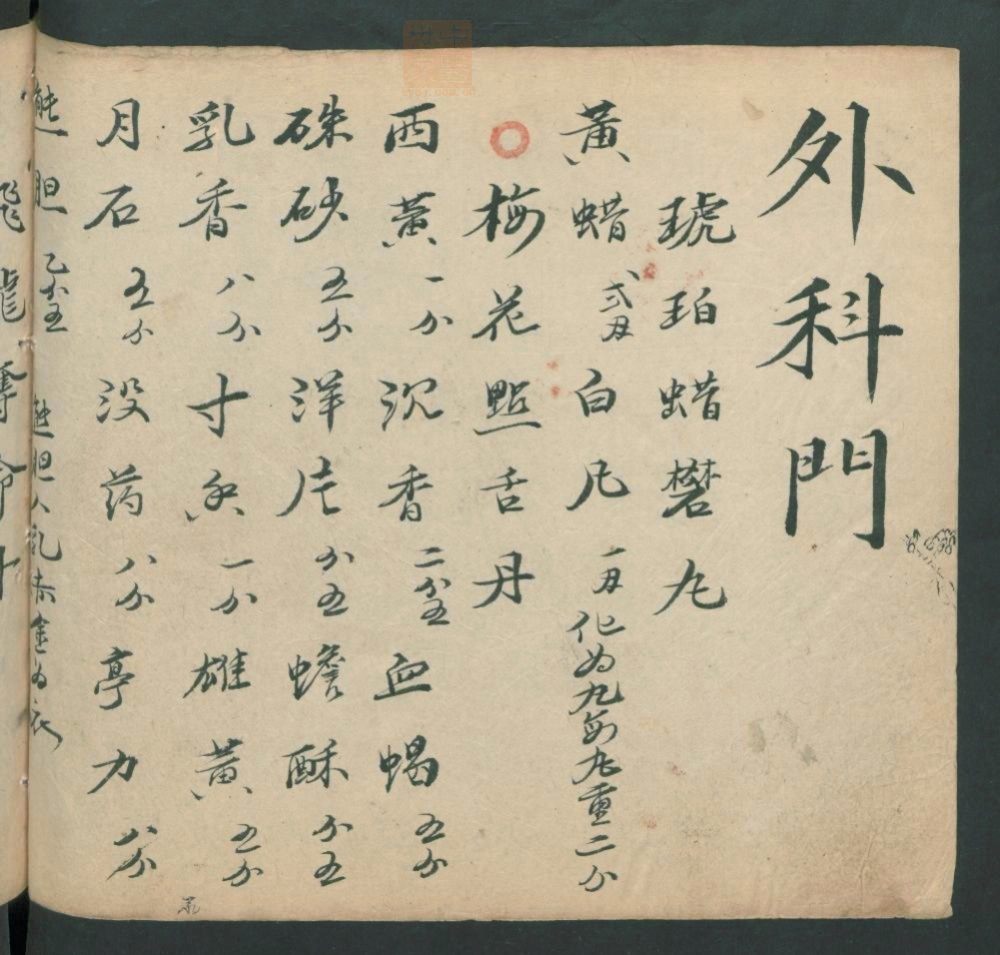 外科門
琥珀蜡礬丸
黃蜡弍刄白凡一刄化为丸每丸重二分
梅花點舌丹
西黃一分沉香二分五血蝎五分
硃砂五分洋片分五蟾酥分五
乳香八分寸香一分雄黃五分
月石五分没药八分亭力八分
熊胆乙分五熊胆人乳赤金为衣
飛龍奪命丹